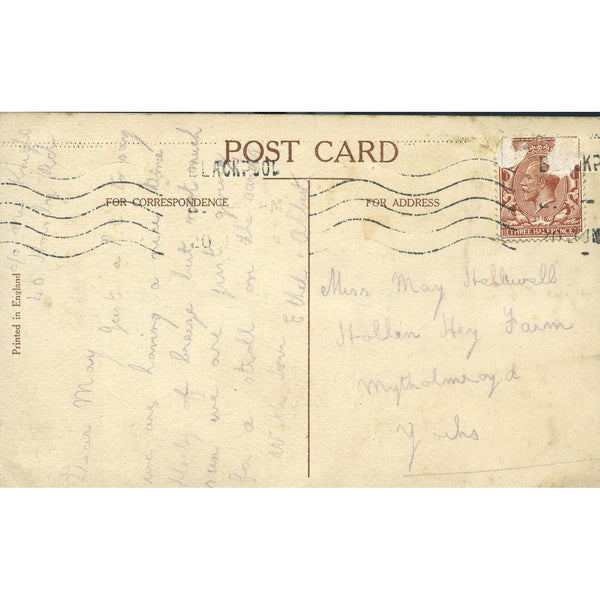 POST CARD
BLACKPOOL
FOR CORRESPONDENCE
FOR ADDRESS
THREE HALFPENCE
Printed in England
40
Dear May Just a P.C. to say
we are having a nice time
plenty of breeze but not much
sun we are just going
for a stroll on the sands
With love
Ethel
Miss May Helliwell
Hollen Hey Farm
Mytholmroyd
Yorks